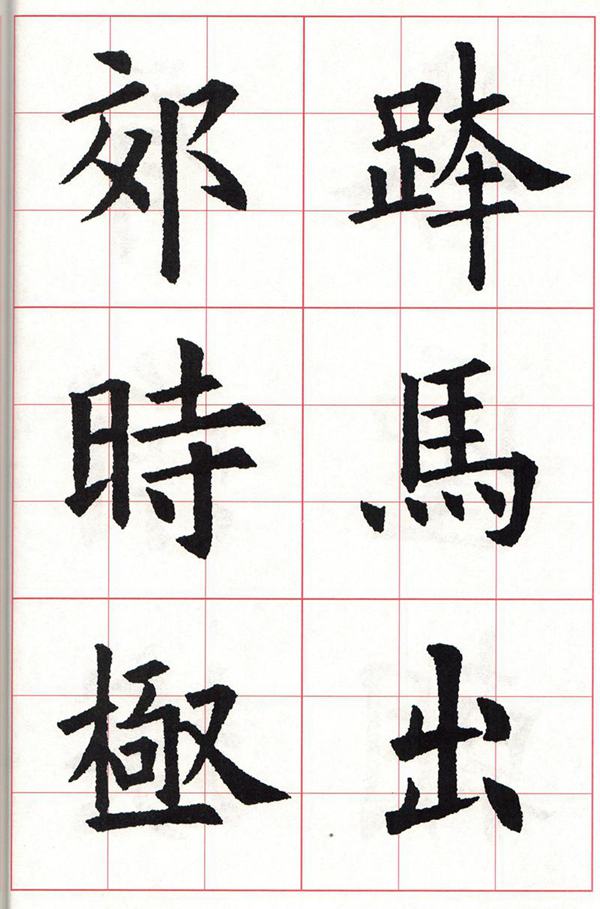 跨馬出
郊時極